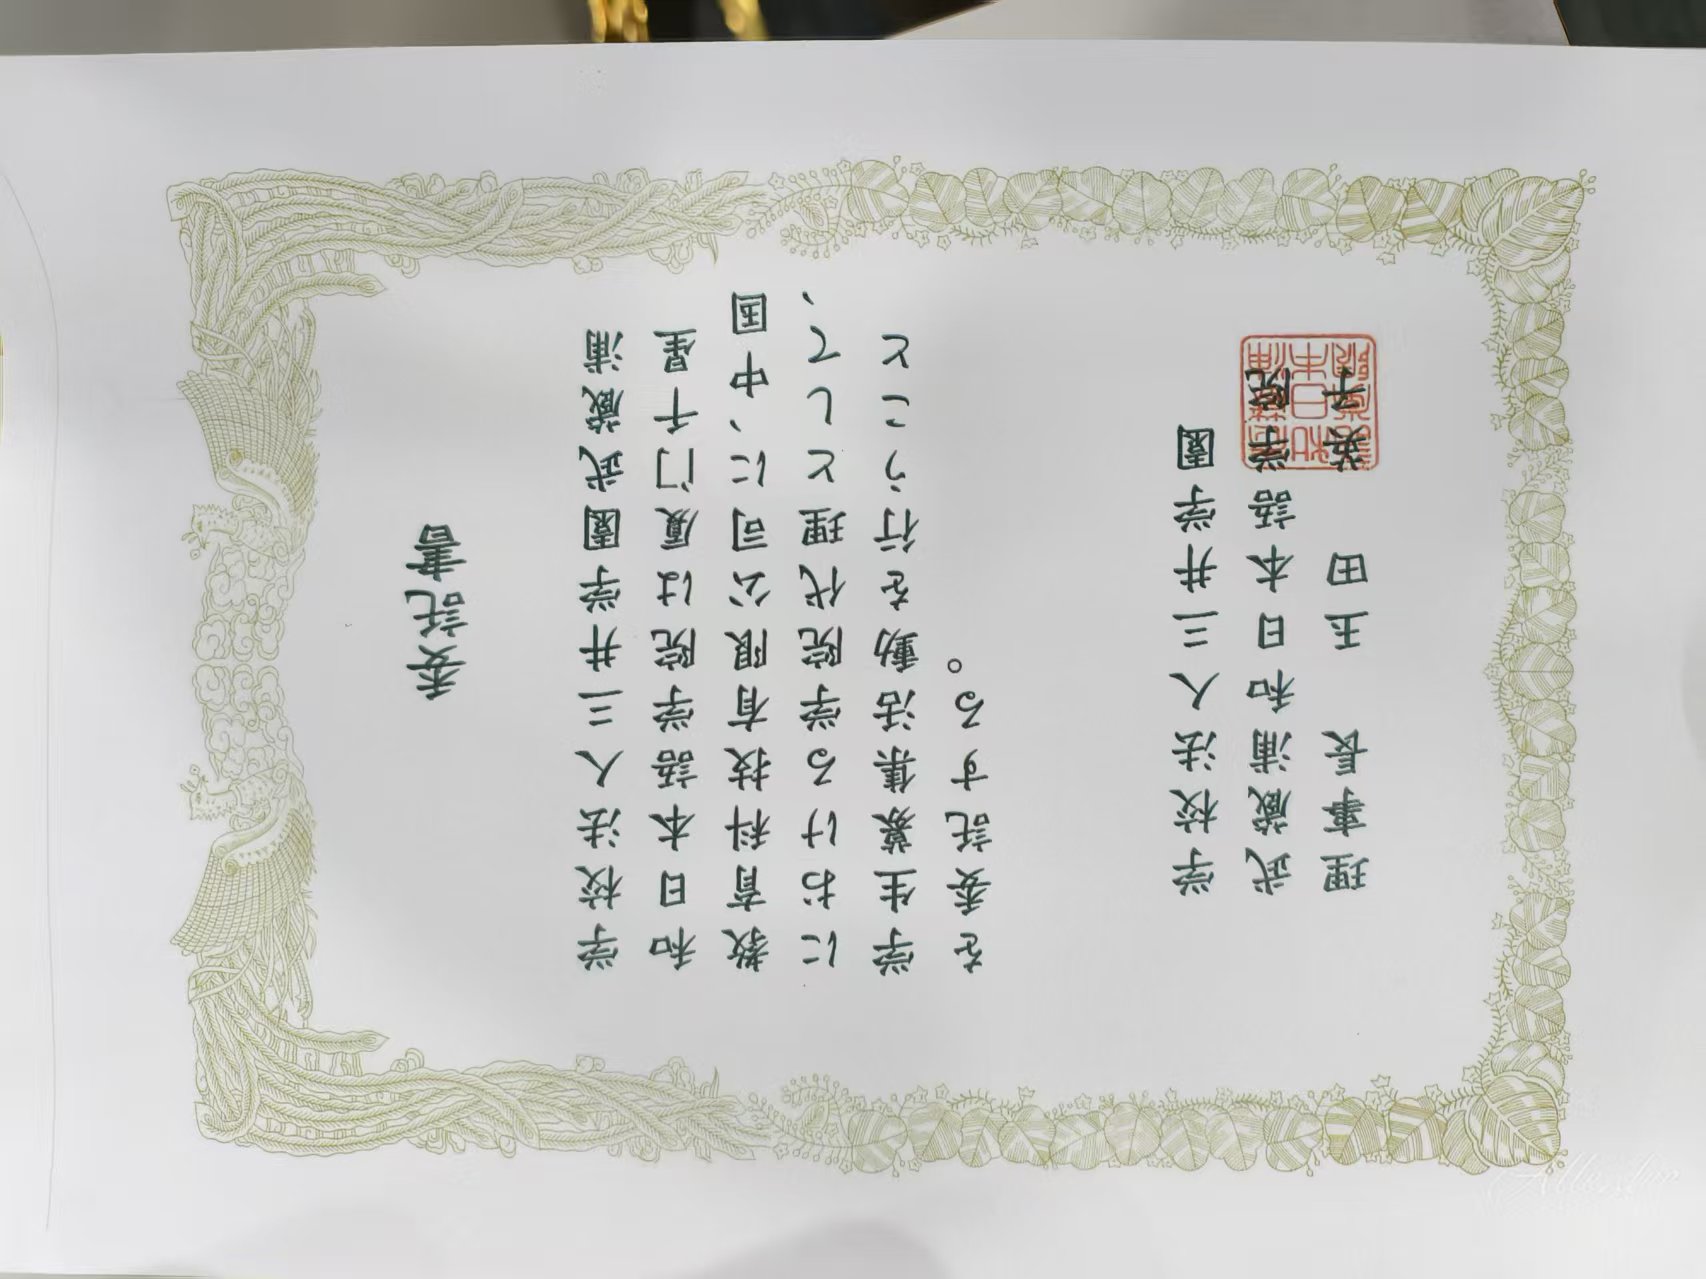 委託書
学校法人三井学園武蔵浦
和日本語学院は厦门千星
教育科技有限公司に、中国
における学院代理として、
学生募集活動を行うこと
を委託する。
学校法人三井学園
武蔵浦和日本語学院
理事長 玉田 英子